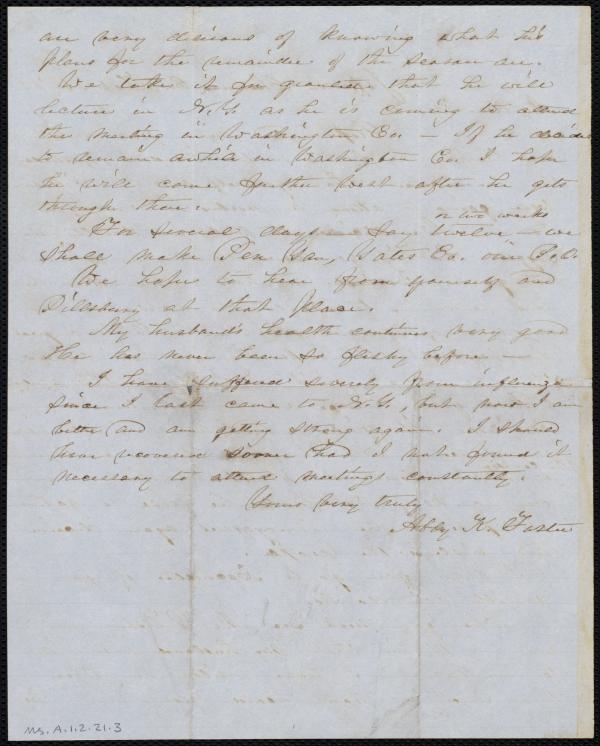 are very desirous of knowing what his
plans for the remainder of the season are.
We take it for granted that he will
lecture in N.Y. as he is coming to attend
the meeting in Washington Co. — If he decides
to remain awhile in Washington Co. I hope
he will come further West after he gets
through there.
or two weeks
For several days — say twelve — we
shall make Pen Yan, Yates Co. our P.O.
We hope to hear from yourself and
Pillsbury at that place.
My husband's health continues very good
He has never been so fleshy before —
I have suffered severely from influenza
since I last came to N.Y., but now I am
better and am getting strong again. I should
have recovered sooner had I not found it
necessary to attend meetings constantly.
Yours very truly
Abby K. Foster
Ms. A.1.2.21.3